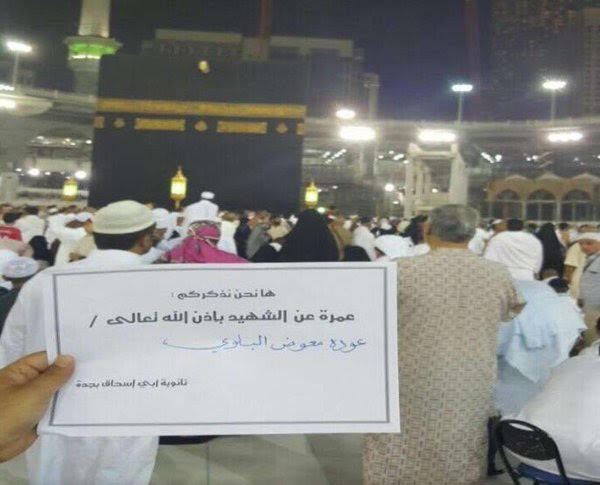 ها نحن نذكركم :
عمرة عن الشهيد باذن الله تعالى /
عوده معوض البلوي
ثانوية إبي إسحاق بجدة